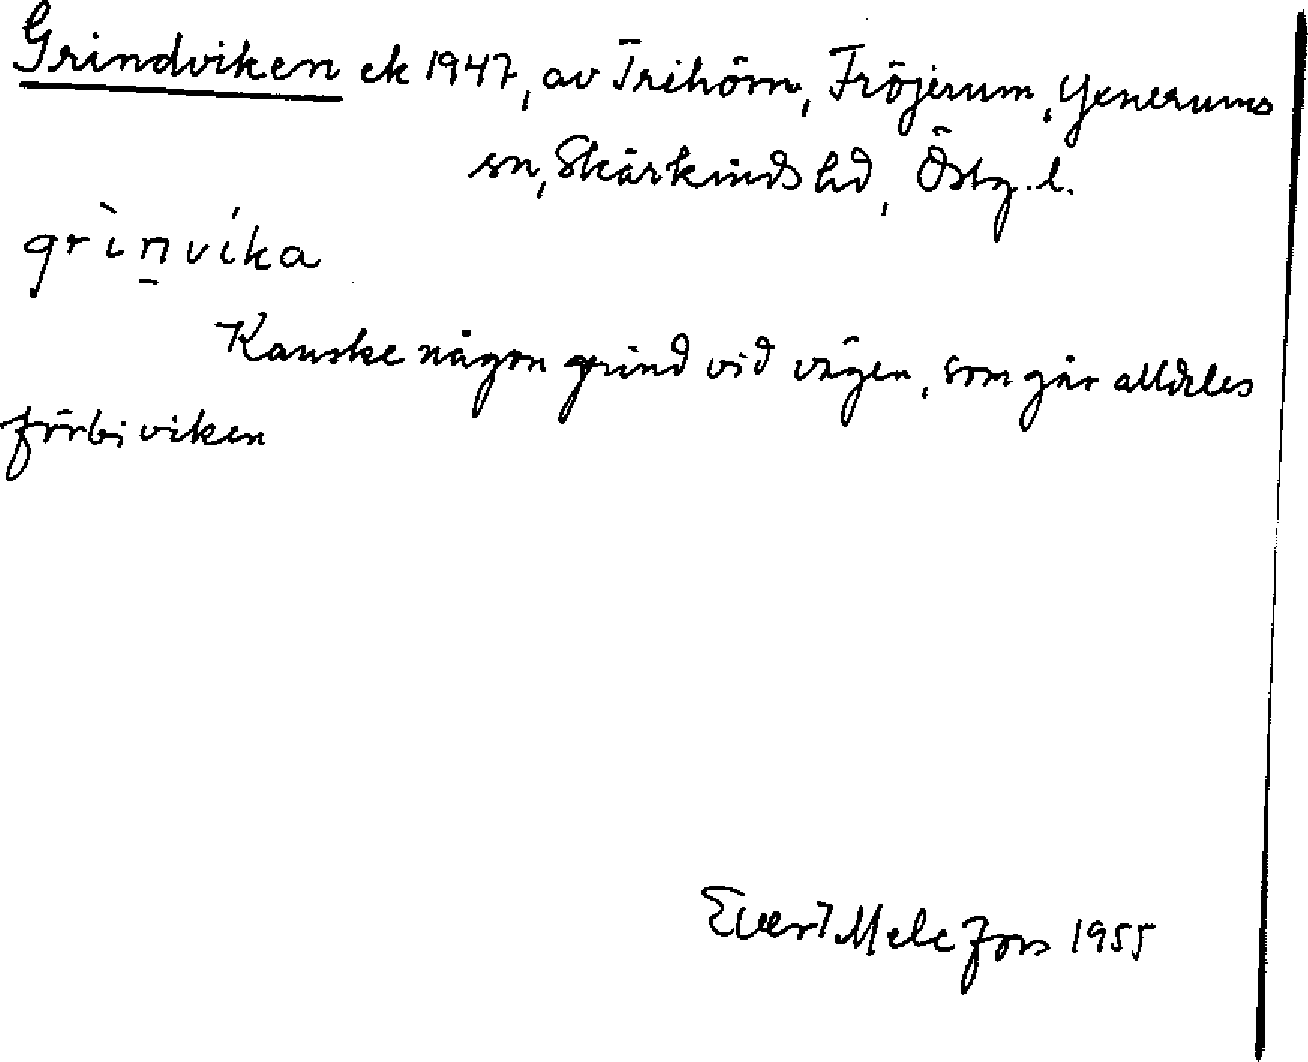 Grindviken ek 1947, av Trihörn, Fröjerum, Yxnerums
sn, Skärkinds hd, Östg. l.
grìnvíka
Kanske någon grind vid vägen, som går alldeles
förbi viken
Evert Melefors 1955